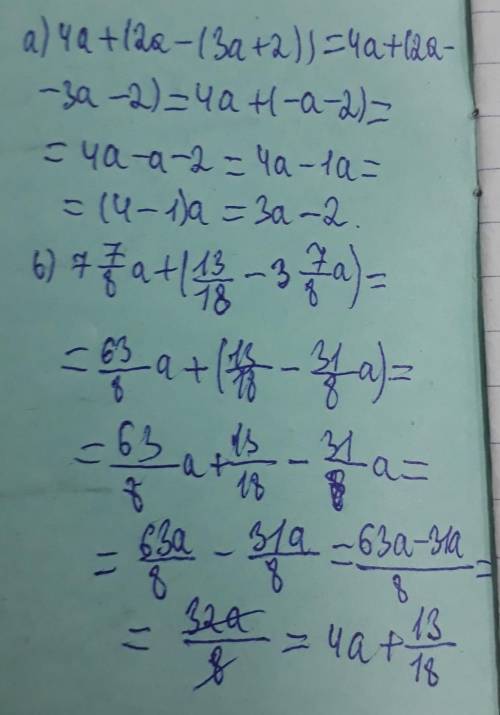 а) 4a+(2a-(3a+2))=4a+(2a-
-3a-2)=4a+(-a-2)=
=4a-a-2=4a-1a=
=(4-1)a=3a-2.
б) 7 7/8 a+(13/18-3 7/8 a)=
=63/8 a+(13/18-31/8 a)=
=63/8 a+13/18-31/8 a=
=63a/8-31a/8=63a-31a/8=
=32a/8=4a+13/18